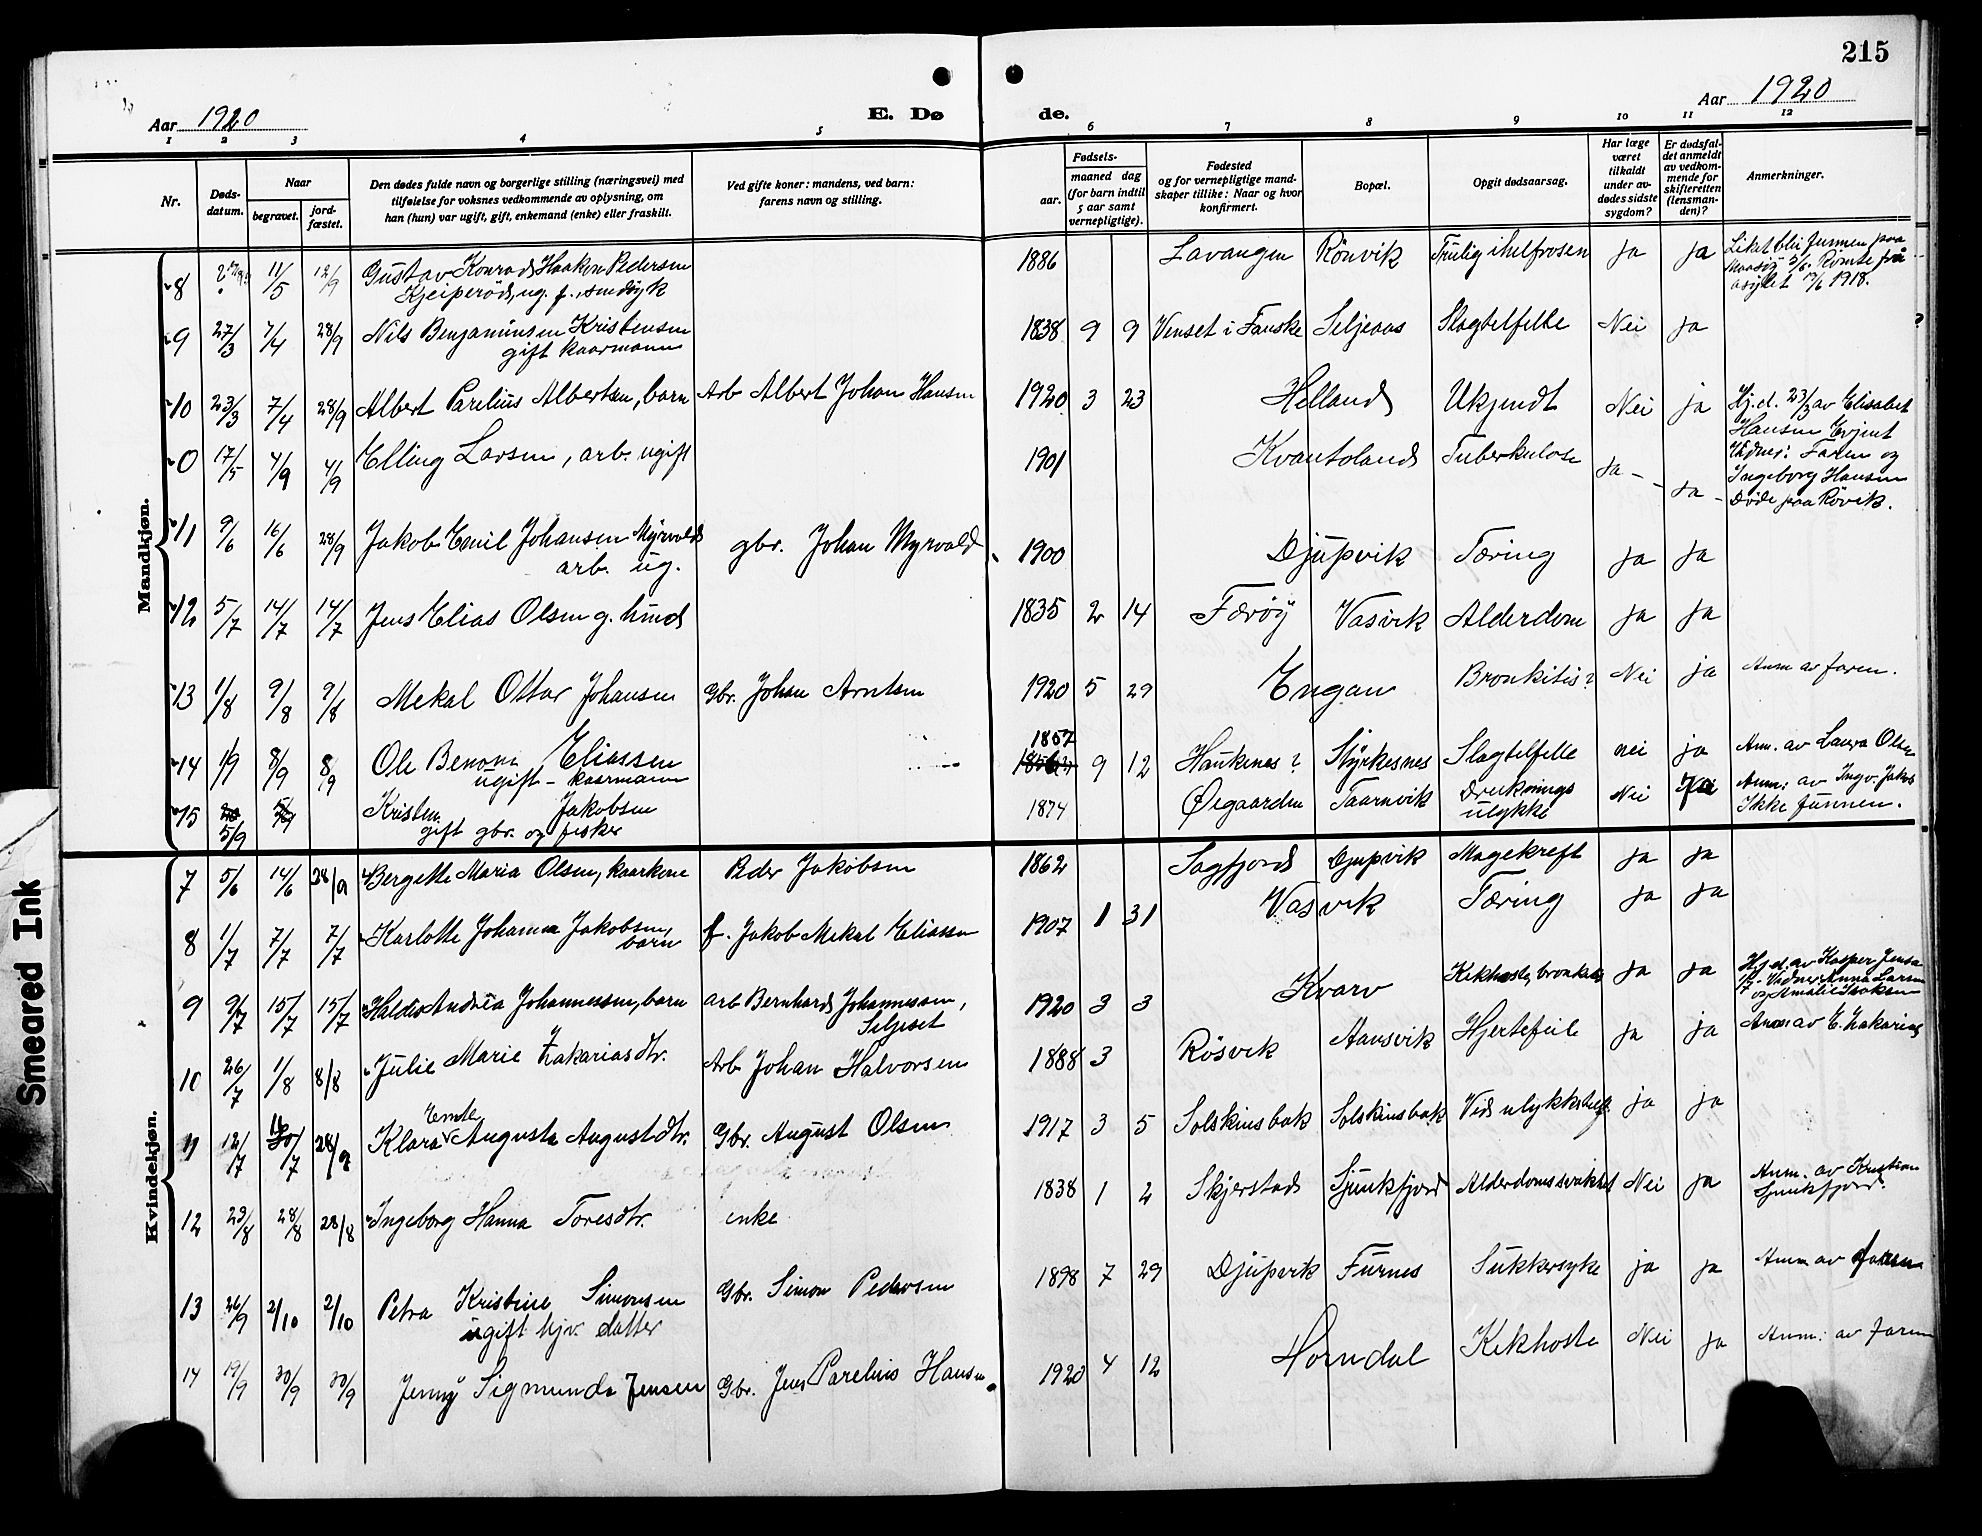 215
Aar 1920
E. Dø de.
Aar 1920
1 2 3 4 5 6 7 8 9 10 11 12
Nr.
Døds-
datum.
Naar
begravet.
jord-
fæstet.
Den dødes fulde navn og borgerlige stilling (næringsvei) med
tilføielse for voksnes vedkommende av oplysning, om
han (hun) var ugift, gift, enkemand (enke) eller fraskilt.
Ved gifte koner: mandens, ved barn:
farens navn og stilling.
Fødsels-
aar.
maaned dag
(for barn indtil
5 aar samt
vernepligtige).
Fødested
og for vernepligtige mand-
skaper tillike: Naar og hvor
konfirmert.
Bopæl.
Opgit dødsaarsag.
Har læge
været
tilkaldt
under av-
dødes sidste
sygdom?
Er dødsfal-
det anmeldt
av vedkom-
mende for
skifteretten
(lensman-
den)?
Anmerkninger.
Mandkjøn.
8 11/5 12/9 Gustav Konrad Haakon Pedersen 1886 Lavangen Rönvik Trulig ihelfrosen ja ja Liket blei funnen paa
Kjeiperöd, ug. f., sindsyk Rømte frå
asylet 17/6 1918.
9 27/3 7/4 28/9 Nils Benjaminsen Kristensen 1838 9 9 Venset i Fauske Seljeaas Slagtelfelle Nei ja
gift kaarmann
10 23/3 7/4 28/9 Albert Parelius Albertsen, barn Arb Albert Johan Hansen 1920 3 23 Helland Ukjendt Nei ja Hj.d. 23/3 av Elisabet
Hansen Evjent
0 17/5 4/9 4/9 Elling Larsen, arb. ugift 1901 Kvantoland Tuberkulose ja - ja - Vidner: Faren og
Ingeborg Hansen
Døde paa Røvik.
11 9/6 16/6 28/9 Jakob Emil Johansen Myrvold gbr. Johan Myrvold 1900 Djupvik Tæring ja ja
arb. ug.
12 5/7 14/7 14/7 Jens Elias Olsen g. husd 1835 2 14 Færöy Vasvik Alderdom ja ja
13 1/8 9/8 9/8 Mekal Ottar Johansen Gbr. Johan Arntsen 1920 5 29 Engan Bronkitis? Nei ja Anm av faren.
14 1/9 8/9 8/9 Ole Benoni Eliassen 1857 9 12 Haukenes? Styrkesnes Slagtelfelle nei ja Anm. av Laura Olsen
ugift - kaarmann
15 5/9 Kristen Jakobsen 1874 Øegaarden Taarnvik Druknings Nei Ja Anm: av Ingv. Jakobs
gift gbr. og fisker ulykke Ikke funnen.
Kvindekjøn.
7 5/6 14/6 28/9 Bergette Maria Olsen, kaarkone Peder Jakobsen 1862 Sagfjord Djupvik Magekreft ja ja
8 1/7 7/7 7/7 Karlotte Johanna Jakobsen, f. Jakob Mekal Eliassen 1907 1 31 Vasvik Tæring ja ja
barn
9 9/7 15/7 15/7 Haldis Andrea Johannessen, barn arb Bernhard Johannessen, 1920 3 3 Kvarv Kikhoste, ja ja Hj.d. av Kasper Jensen
Seljeset Vidner Anna Larsen
og Amalie Isaksen
10 26/7 1/8 8/8 Julie Marie Zakariasdtr. Arb Johan Halvorsen 1888 3 Røsvik Aansvik Hjertefeil ja ja Anm av E. Zakarias
11 12/7 28/9 Klara Emte Augusta Augustdtr. Gbr. August Olsen 1917 3 5 Solskinsbak Solskinsbak Ved ulykkestilf. ja ja
12 23/8 28/8 28/8 Ingeborg Hanna Toresdtr. enke 1838 1 2 Skjerstad Sjunkfjord Alderdomssvakhet Nei ja Anm. av Kristian
Sjunkfjord.
13 26/9 2/10 2/10 Petra Kristine Simonsen Gbr. Simon Pedersen 1898 7 29 Djupvik Furnes Sukkersyke ja ja Anm av faren
ugift hjv. datter
14 19/9 30/9 30/9 Jenny Sigmunda Jensen Gbr. Jens Parelius Hansen 1920 4 12 Horndal Kikhoste Nei ja Anm: av faren
Smeared Ink